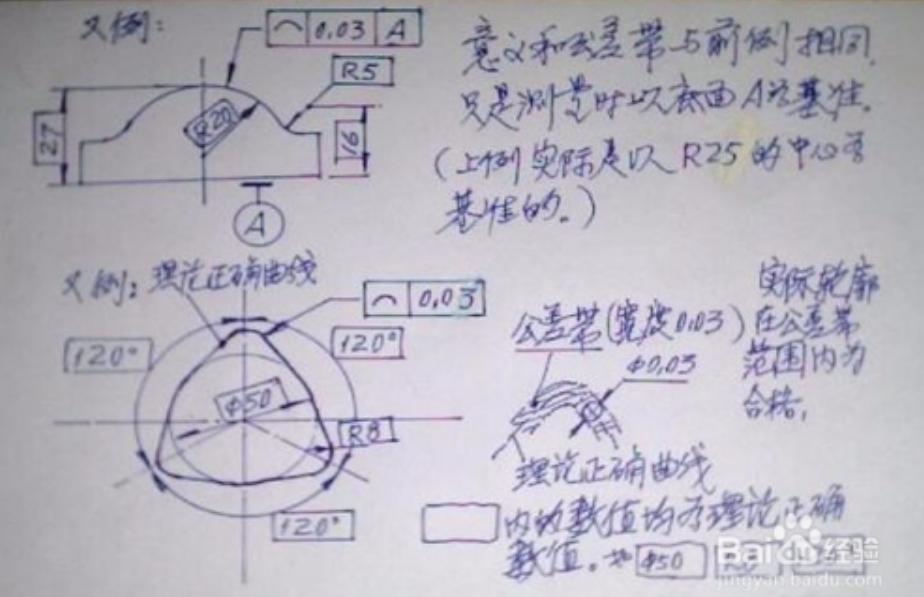 又例：
⌒ 0.03 A
R5
R20
27
16
A
意义和公差带与前例相同，
只是测量时以底面A为基准。
（上例实际是以R25的中心为
基准的。）
又例：理论正确曲线
⌒ 0.03
120°
120°
φ50
R8
120°
公差带（宽度0.03）
φ0.03
实际轮廓
在公差带
范围内为
合格，
理论正确曲线
内的数值均为理论正确
数值。如 φ50
Bai 经验
jingyan.baidu.com